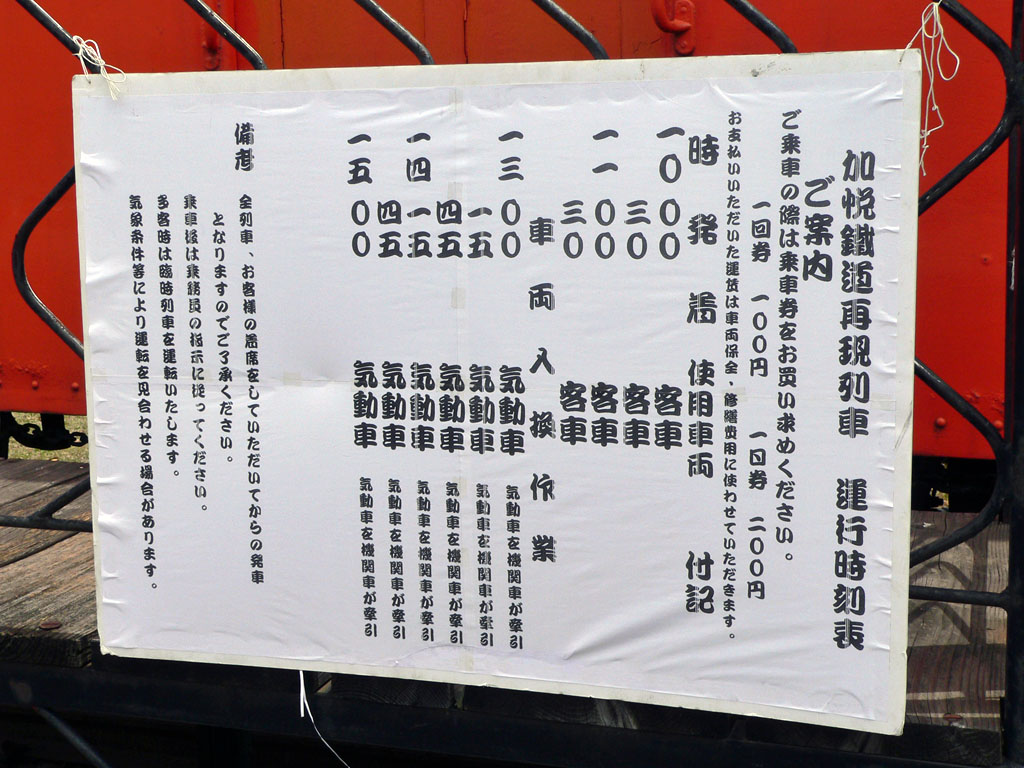 加悦鐵道再現列車　運行時刻表
ご案内
ご乗車の際は乗車券をお買い求めください。
一回券　一〇〇円　一日券　二〇〇円
お支払いいただいた運賃は車両保全、修繕費用に使わせていただきます。
時発着　使用車両　付記
一〇〇〇　客車
三〇　客車
一一〇〇　客車
三〇　客車
車両入換作業
一三〇〇　気動車　気動車を機関車が牽引
一五　気動車　気動車を機関車が牽引
四五　気動車　気動車を機関車が牽引
一四一五　気動車　気動車を機関車が牽引
四五　気動車　気動車を機関車が牽引
一五〇〇　気動車　気動車を機関車が牽引
備考　全列車、お客様の着席をしていただいてからの発車
となりますのでご了承ください。
乗車後は乗務員の指示に従ってください。
多客時は臨時列車を運転いたします。
気象条件等により運転を見合わせる場合があります。